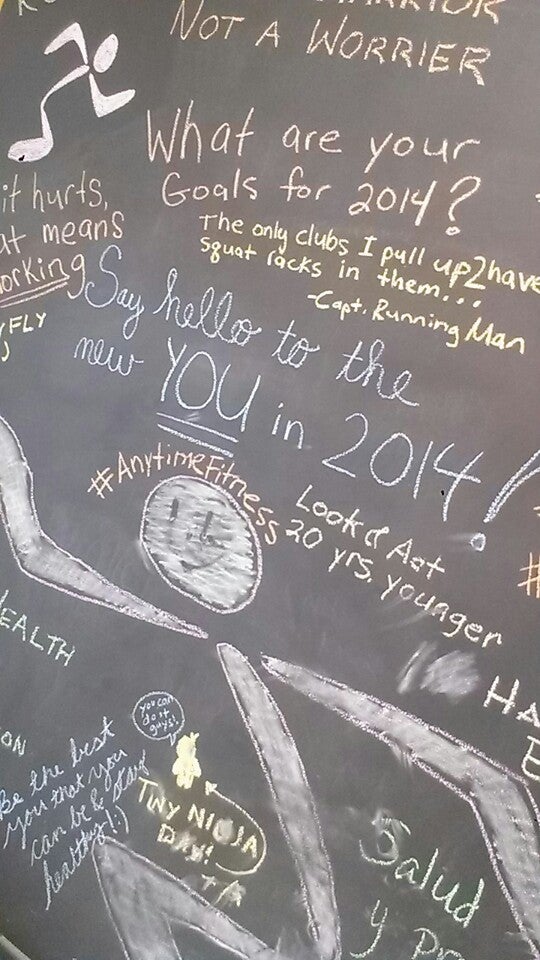 WARRIOR
NOT A WORRIER
What are your
Goals for 2014?
The only clubs I pull up 2 have
squat racks in them...
-Capt. Running Man
it hurts,
at means
orking
FLY
Say hello to the
new YOU in 2014!
#AnytimeFitness
Look & Act
20 yrs. younger
HEALTH
HA
E
ON
you can
do it
guys!
Be the best
you that you
can be &
healthy! :)
TINY NINJA
Salud
y